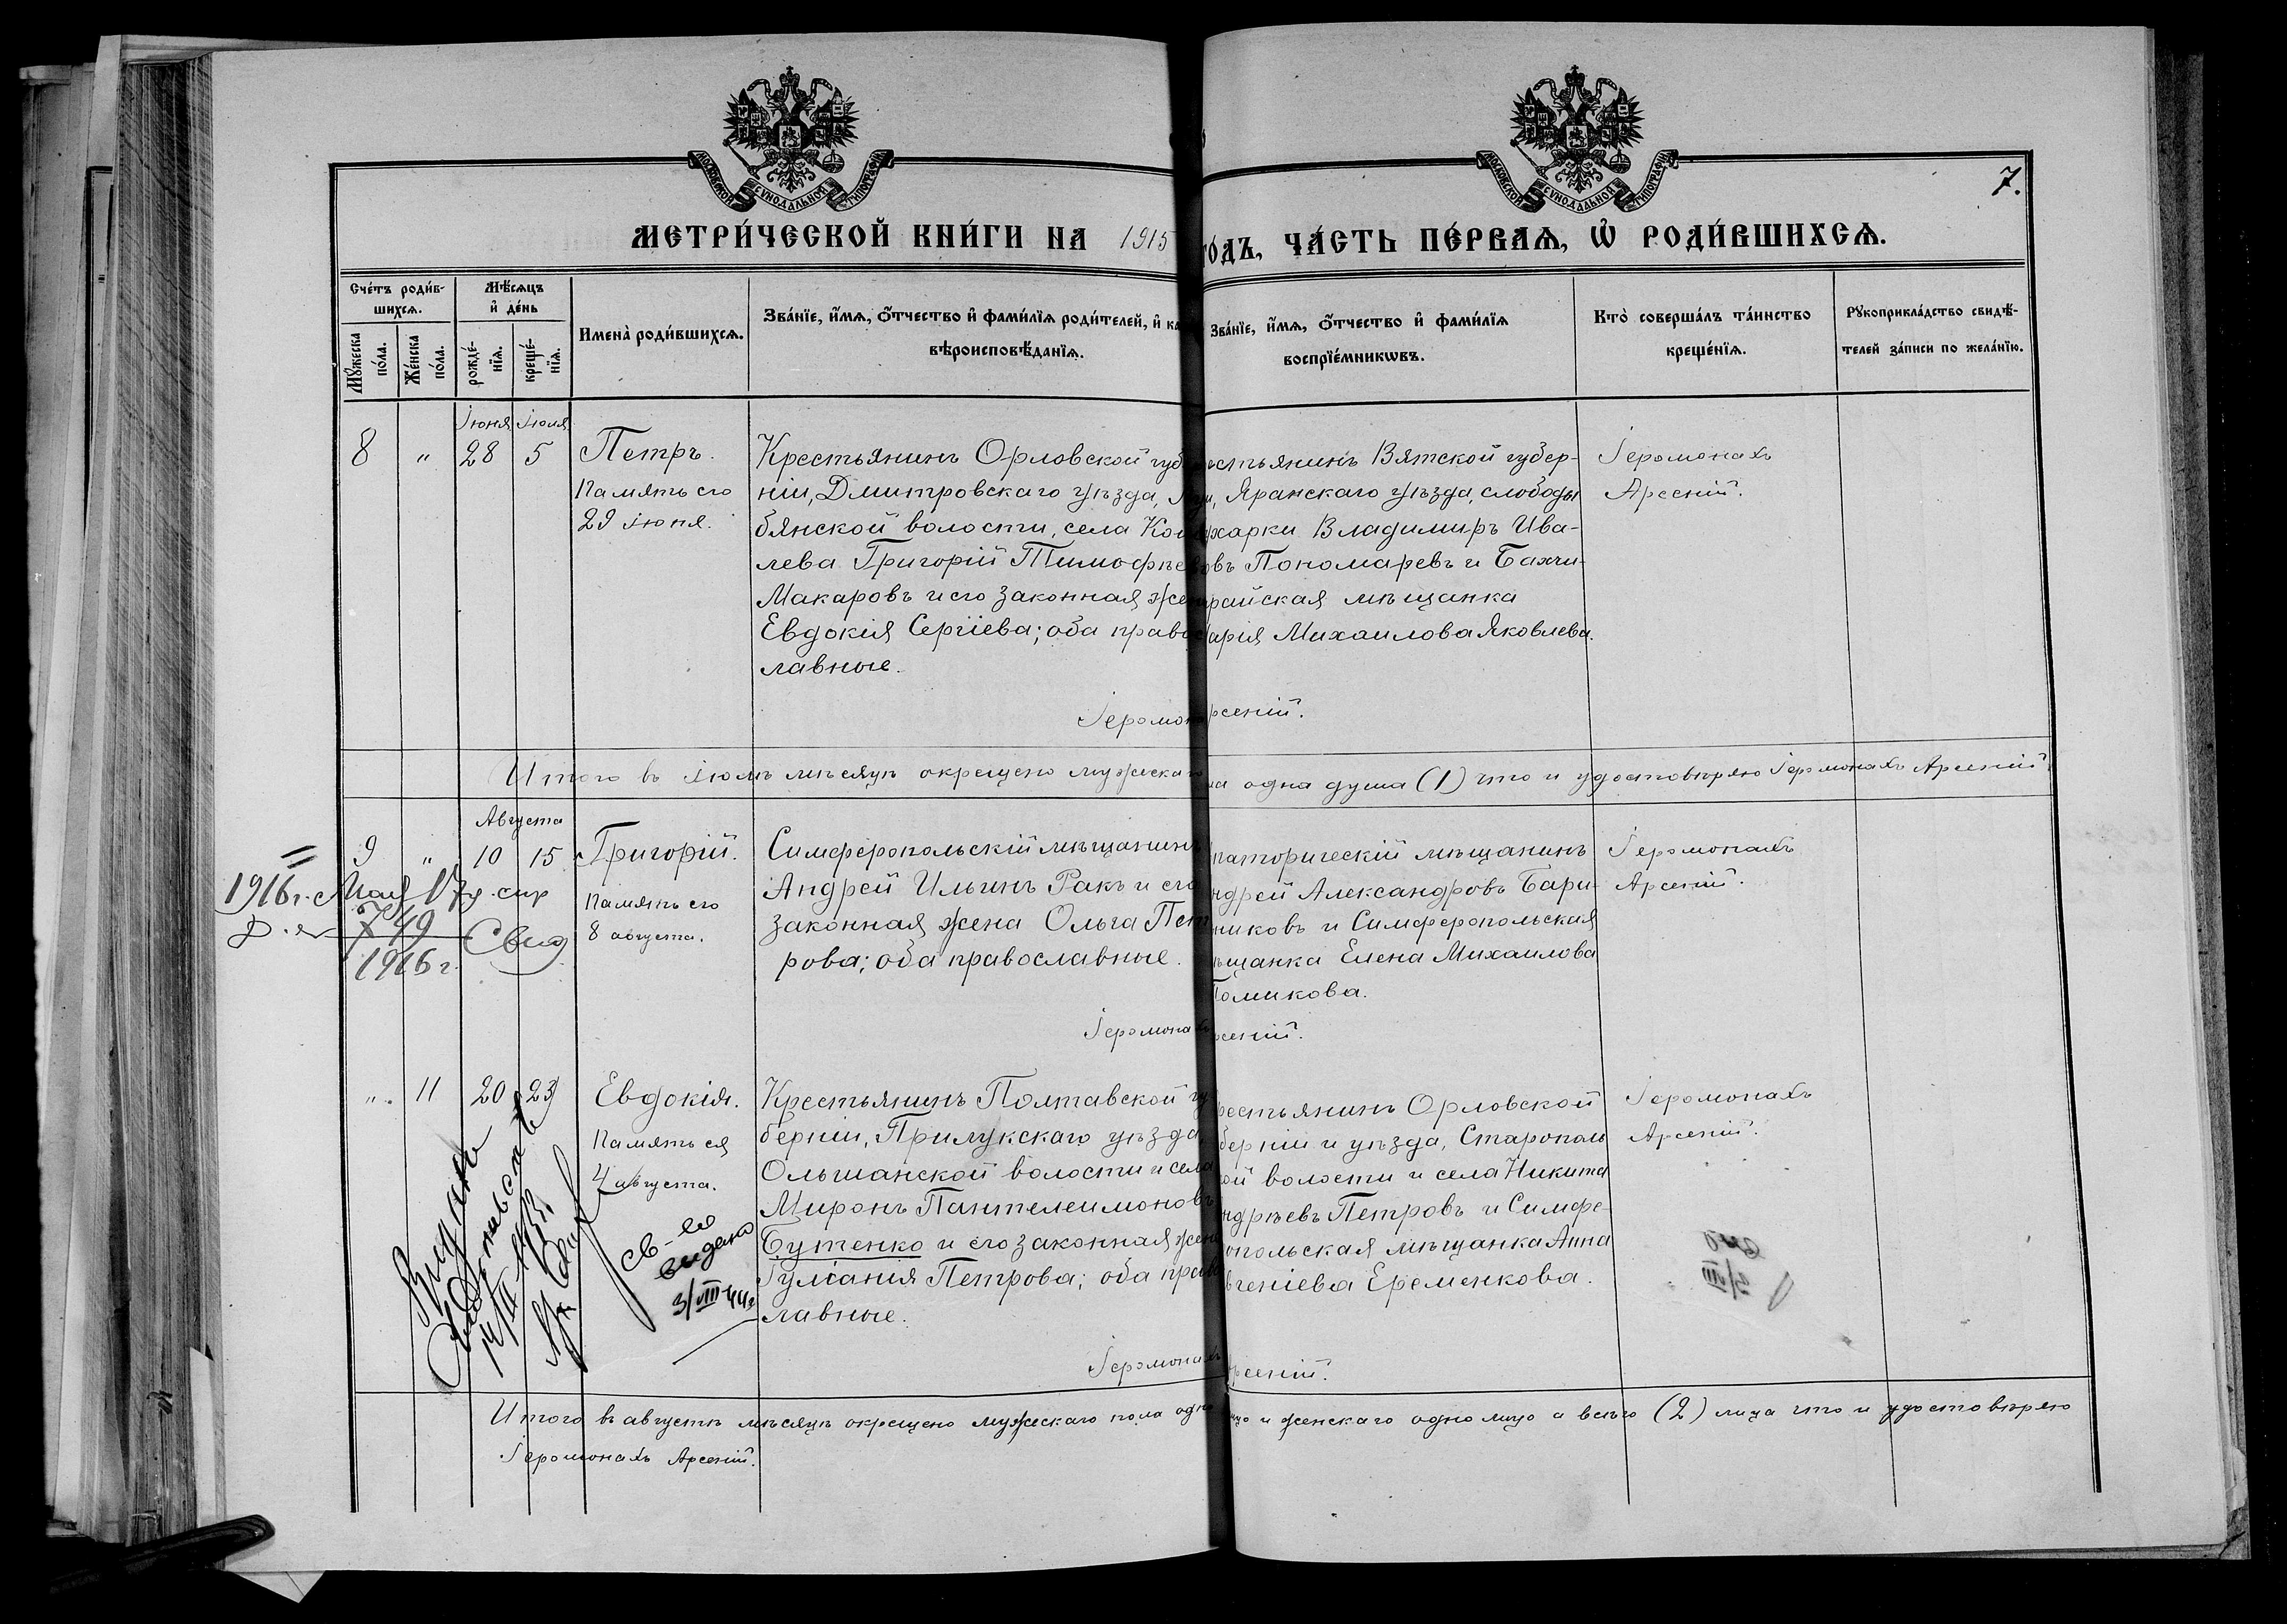 МОСКОВСКОЙ СѴНОДАЛЬНОЙ ТИПОГРАФІИ
МОСКОВСКОЙ СѴНОДАЛЬНОЙ ТИПОГРАФІИ
7.
МЕТРИ́ЧЕСКОЙ КНИ́ГИ НА 1915
ГО́ДЪ, ЧА́СТЬ ПЕ́РВАѦ, Ѡ҆ РОДИ́ВШИХСѦ.
Сче́тъ роди́в-
шихсѧ.
Мꙋ́жеска по́ла.
Же́нска по́ла.
Мѣ́сѧцъ
и҆ де́нь
рожде́-
нїѧ.
креще́-
нїѧ.
Имена̀ роди́вшихсѧ.
Зва́нїе, и҆́мѧ, о҆́тчество и҆ фами́лїѧ роди́телей, и҆ ка
вѣроисповѣ́данїѧ.
Зва́нїе, и҆́мѧ, о҆́тчество и҆ фами́лїѧ
воспрїе́мникѡвъ.
Кто̀ соверша́лъ та́инство
креще́нїѧ.
Рꙋкоприкла́дство свидѣ́-
телей за́писи по жела́нїю.
Іюня Іюля
8 " 28 5
Петръ.
Память его
29 іюня.
Крестьянинъ Орловской губ
ніи, Дмитровскаго уѣзда, Лу
бянской волости, села Ко
лева Григорій Тимоѳѣев
Макаровъ и его законная жен
Евдокія Сергіева; оба право
лавные.
остьянинъ Вятской губер-
и, Яранскаго уѣзда, слободы
харки Владимиръ Ива-
овъ Пономаревъ и Бахчи-
райская мѣщанка
арія Михаилова Яковлева.
Іеромонахъ
Арсеній.
Іеромона рсеній.
Итого въ іюлѣ мѣсяцѣ окрещено мужскаго ла одна душа (1) что и удостовѣряю Іеромонахъ Арсеній.
Августа
9 " 10 15
Григорій.
Память его
8 августа.
Симферопольскій мѣщанинъ
Андрей Ильинъ Ракъ и его
законная жена Ольга Пет
рова; оба православные.
паторическій мѣщанинъ
ндрей Александровъ Бари-
никовъ и Симферопольская
ѣщанка Елена Михаилова
Томикова.
Іеромонахъ
Арсеній.
1916 г. Мая 17 д.
749
1916 г.
Свид
Іеромонахъ рсеній.
" 11 20 23
Евдокія.
Память ея
4 августа.
Крестьянинъ Полтавской гу
берніи, Прилукскаго уѣзда,
Ольшанской волости и села
Миронъ Пантелеимоновъ
Бутенко и его законная жен
Іуліанія Петрова; оба право
лавные.
рестьянинъ Орловской
берніи и уѣзда, Старополь
кой волости и села Никита
ндрѣевъ Петровъ и Симфе-
опольская мѣщанка Анна
вгеніева Еременкова.
Іеромонахъ
Арсеній.
св-во
выдано
3/VIII 44 г
Іеромонахъ рсеній.
Итого въ августѣ мѣсяцѣ окрещено мужескаго пола одно лицо и женскаго одно лицо а всего (2) лица что и удостовѣряю
Іеромонахъ Арсеній.